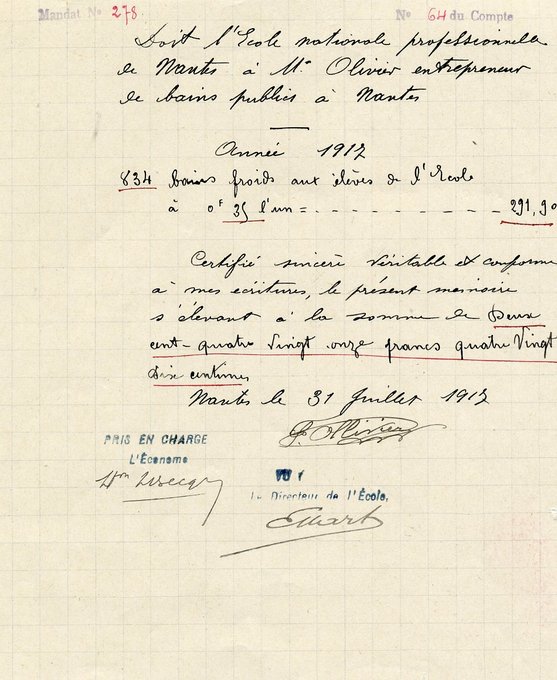 Mandat Nº 278
Nº 64 du Compte
Doit l'Ecole nationale professionnelle
de Nantes à Mr Olivier entrepreneur
de bains publics à Nantes
Année 1917
834 bains froids aux élèves de l'Ecole
à 0f 35 l'un = 291,90
Certifié sincère véritable et conforme
à mes ecritures, le présent memoire
s'élevant à la somme de Deux
cent-quatre vingt onze francs quatre vingt
dix centimes
Nantes le 31 Juillet 1917
PRIS EN CHARGE
L'Économe
VU
Le Directeur de l'École,